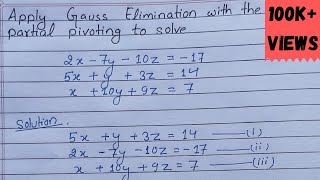 Apply Gauss Elimination with the
partial pivoting to solve
100K+
VIEWS
2x - 7y - 10z = -17
5x + y + 3z = 14
x + 10y + 9z = 7
Solution.
5x + y + 3z = 14 —(i)
2x - 7y - 10z = -17 —(ii)
x + 10y + 9z = 7 —(iii)